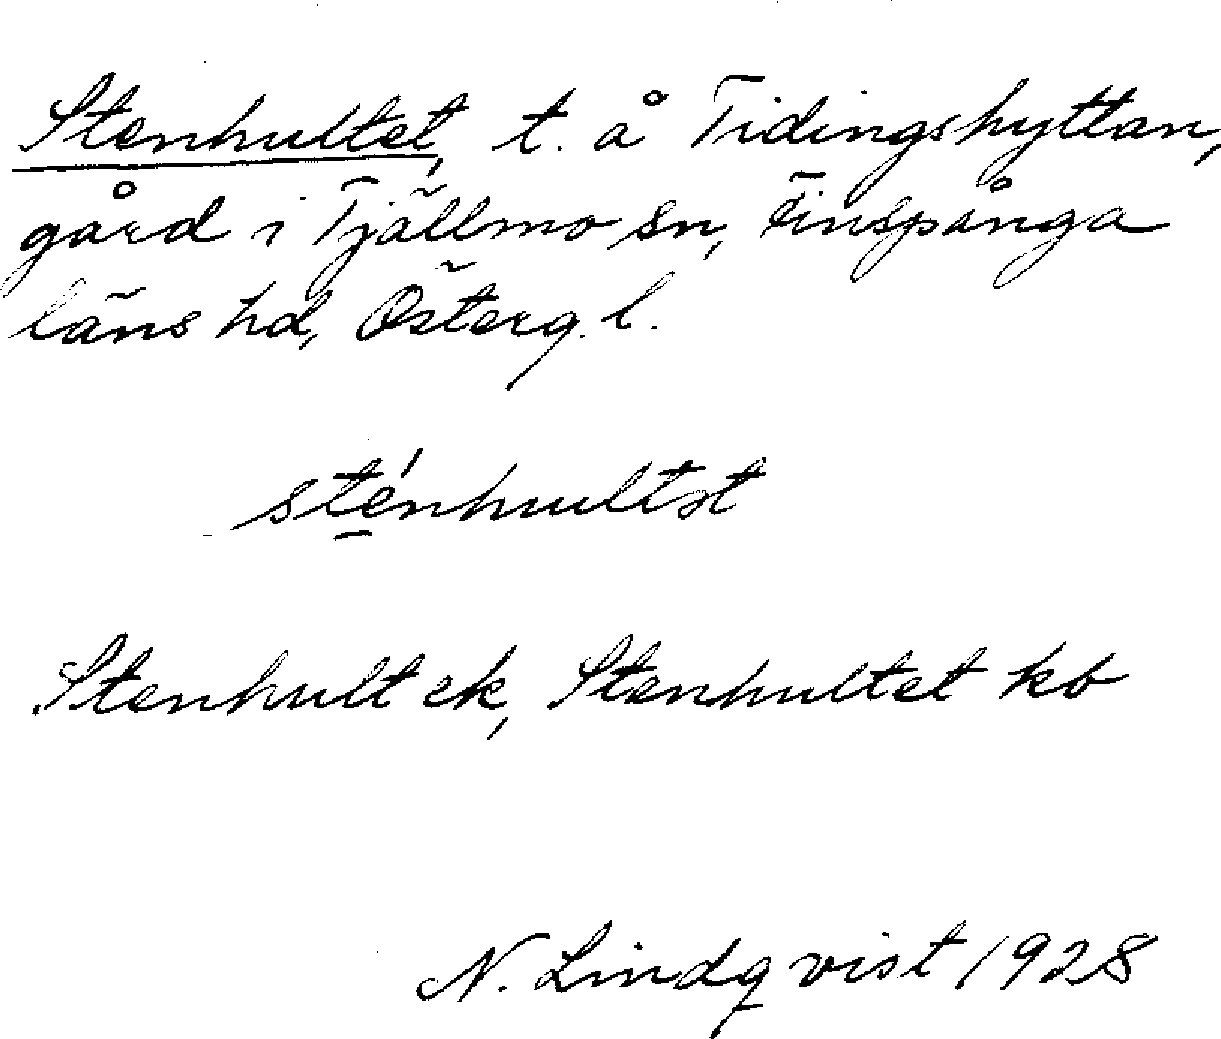 Stenhultet, t. å Tidingshyttan,
gård i Tjällmo sn, Finspånga
läns hd, Österg. l.
sté̱nhultət
Stenhult ek, Stenhultet kb
N. Lindqvist 1928